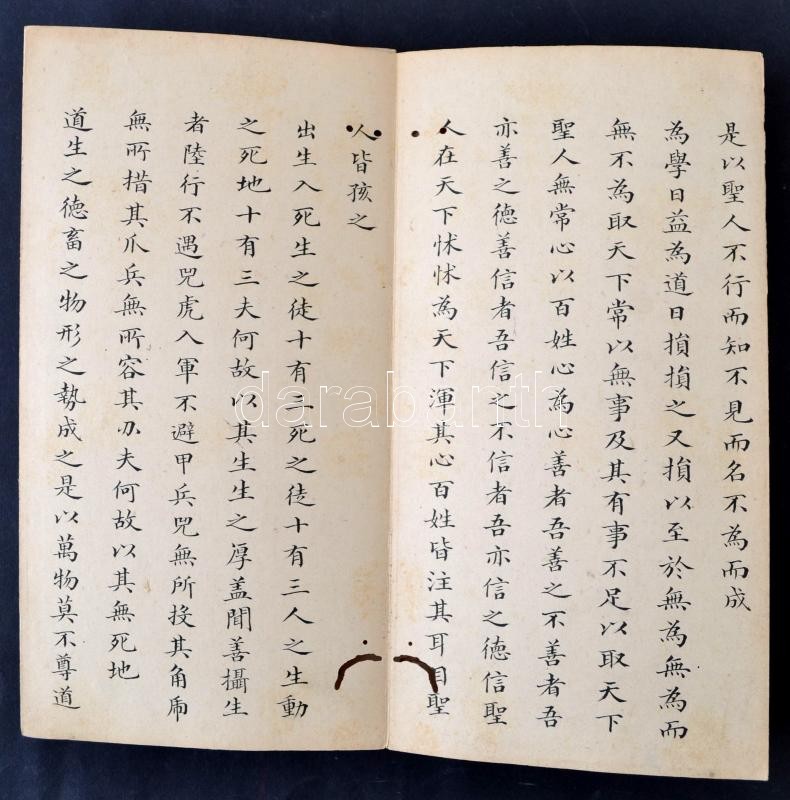 是以聖人不行而知不見而名不為而成
為學日益為道日損損之又損以至於無為無為而
無不為取天下常以無事及其有事不足以取天下
聖人無常心以百姓心為心善者吾善之不善者吾
亦善之德善信者吾信之不信者吾亦信之德信聖
人在天下怵怵為天下渾其心百姓皆注其耳目聖
人皆孩之
出生入死生之徒十有三死之徒十有三人之生動
之死地十有三夫何故以其生生之厚盖聞善攝生
者陸行不遇兕虎入軍不避甲兵兕無所投其角虎
無所措其爪兵無所容其刃夫何故以其無死地
道生之德畜之物形之勢成之是以萬物莫不尊道
darabanth